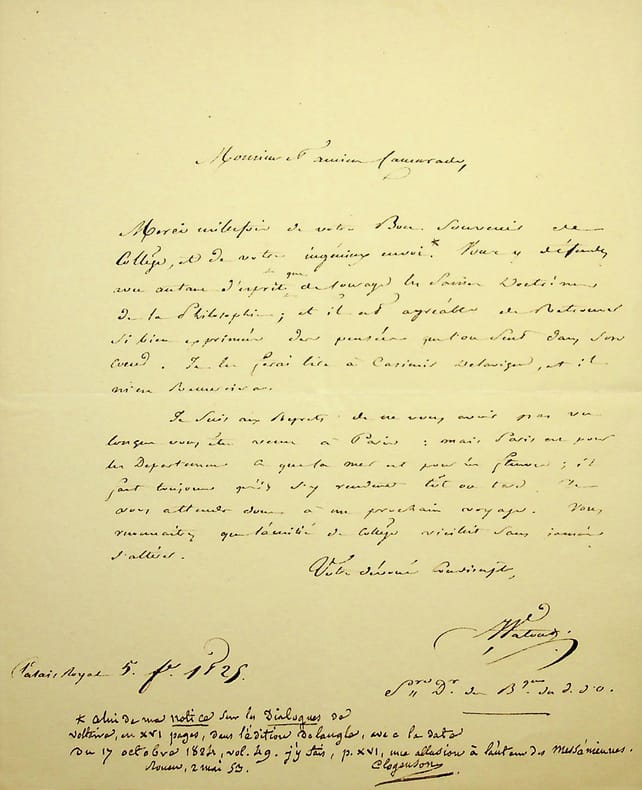 Monsieur et ancien Camarade,
Merci mille fois de votre Bon Souvenir de
Collège, et de votre ingénieux envoi.* Vous y défendez
avec autant d'esprit que de courage les Saines Doctrines
de la Philosophie ; et il est agréable de Retrouver
si bien exprimées des pensées qu'on sent dans son
coeur. Je les ferai lire à Casimir Delavigne, et il
m'en Remerciera.
Je suis aux Regrets de ne vous avoir pas vu
lorsque vous êtes venu à Paris : mais Paris est pour
les Departemens ce que la mer est pour les fleuves ; il
faut toujours qu'ils s'y rendent tôt ou tard. Je
vous attends donc à un prochain voyage. Vous
reconnaitrez que l'amitié de Collège vieillit sans jamais
s'altérer.
Votre dévoué Condisciple,
Vatout
Palais Royal 5. fr. 1825.
du d. d'O.
* celui de ma notice sur les Dialogues de
Voltaire, en XVI pages, dans l'édition Delangle, avec la date
du 17 octobre 1824, vol. 49. j'y fais, p. XVI, une allusion à l'auteur des Messéniennes.
Rouen, 2 mai 53. Clogenson